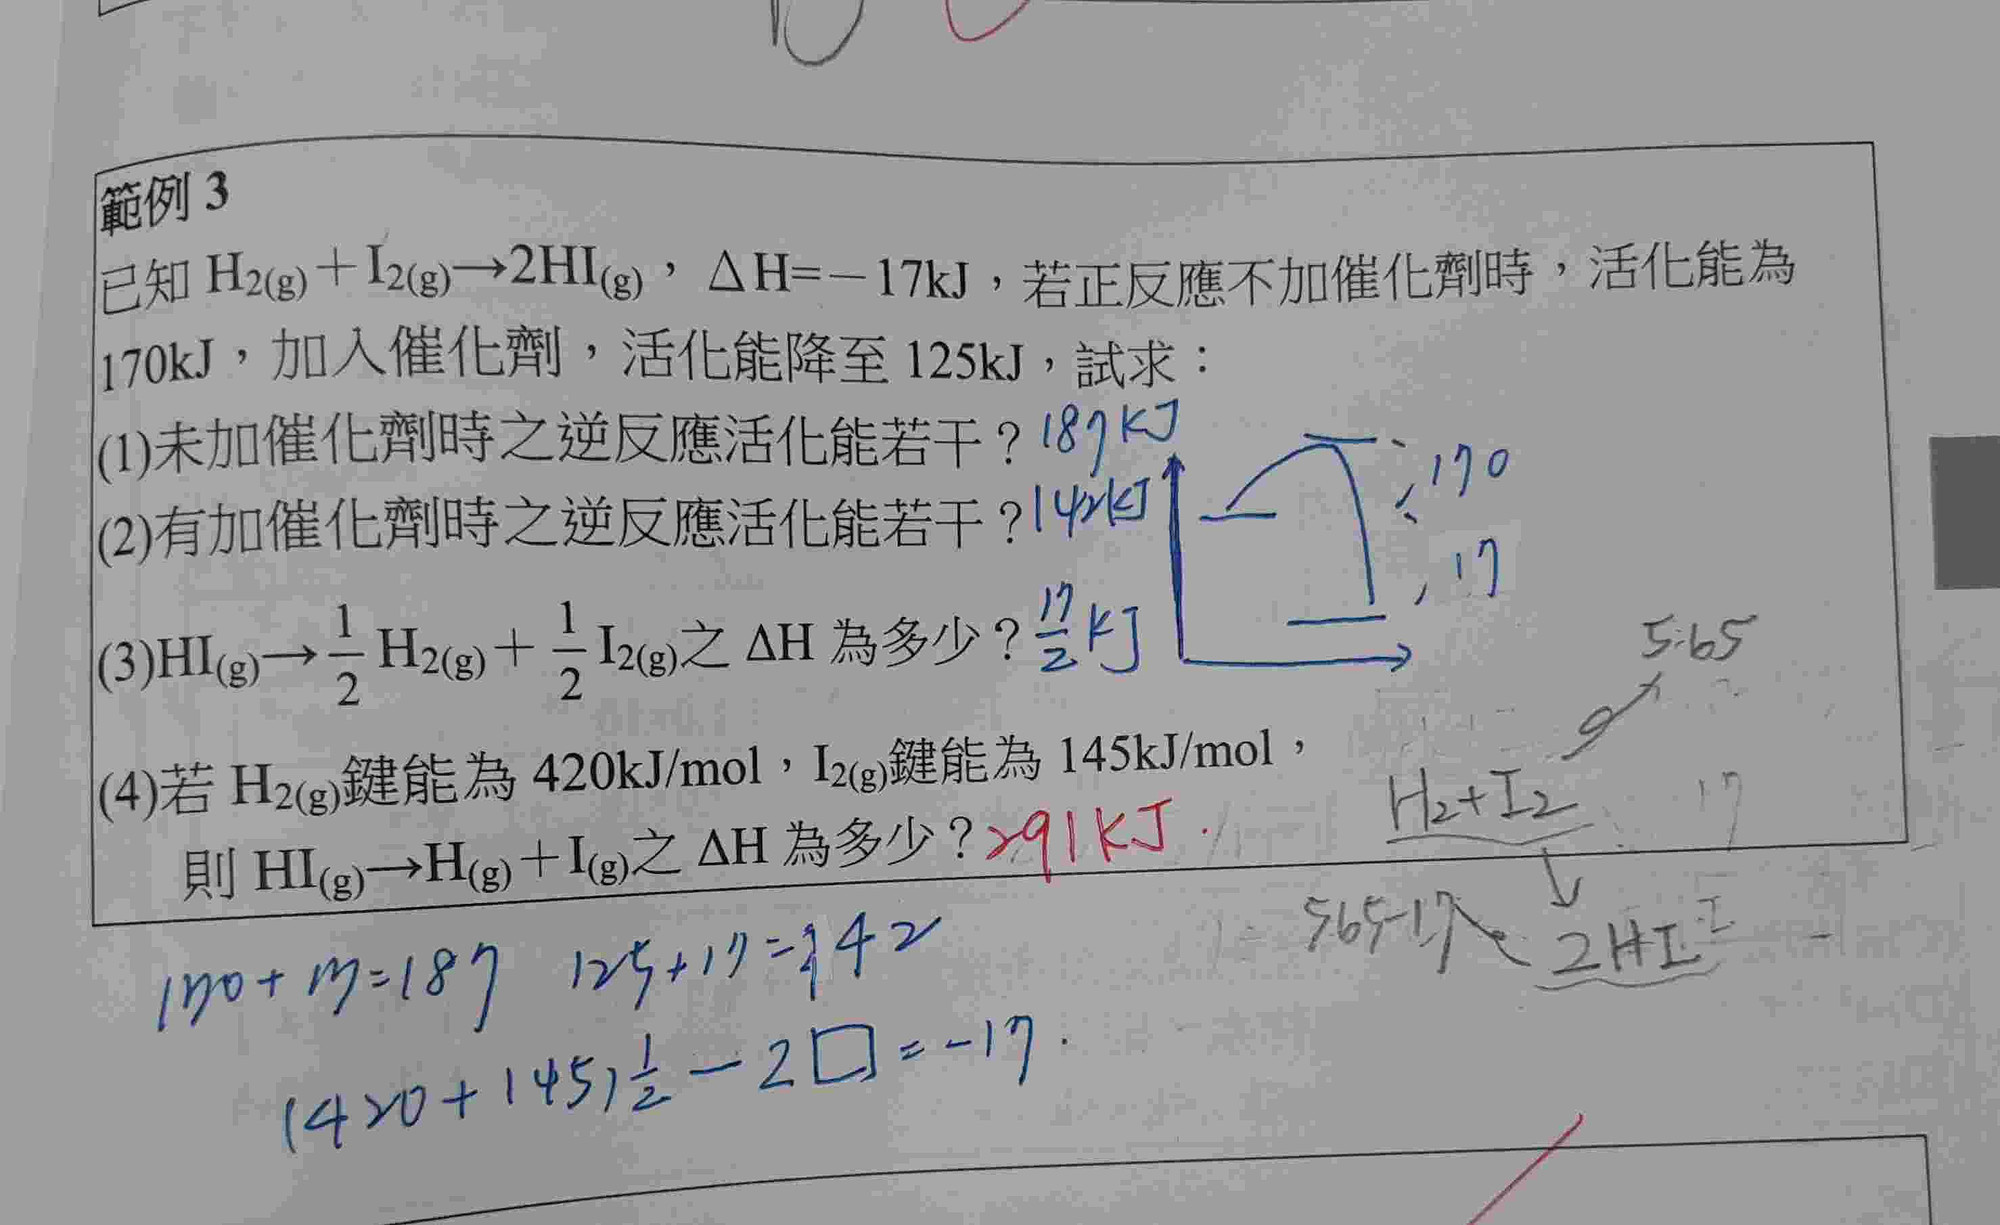 範例 3
已知 H2(g)＋I2(g)→2HI(g)，△H=－17kJ，若正反應不加催化劑時，活化能為
170kJ，加入催化劑，活化能降至 125kJ，試求：
(1)未加催化劑時之逆反應活化能若干？187kJ
(2)有加催化劑時之逆反應活化能若干？142kJ
170
17
(3)HI(g)→1/2 H2(g)＋1/2 I2(g)之 ΔH 為多少？17/2 kJ
565
(4)若 H2(g)鍵能為 420kJ/mol，I2(g)鍵能為 145kJ/mol，
H2+I2
17
則 HI(g)→H(g)＋I(g)之 ΔH 為多少？291kJ.
565-17
2HI
170+17=187 125+17=142
(420+145)1/2-2□=-17.